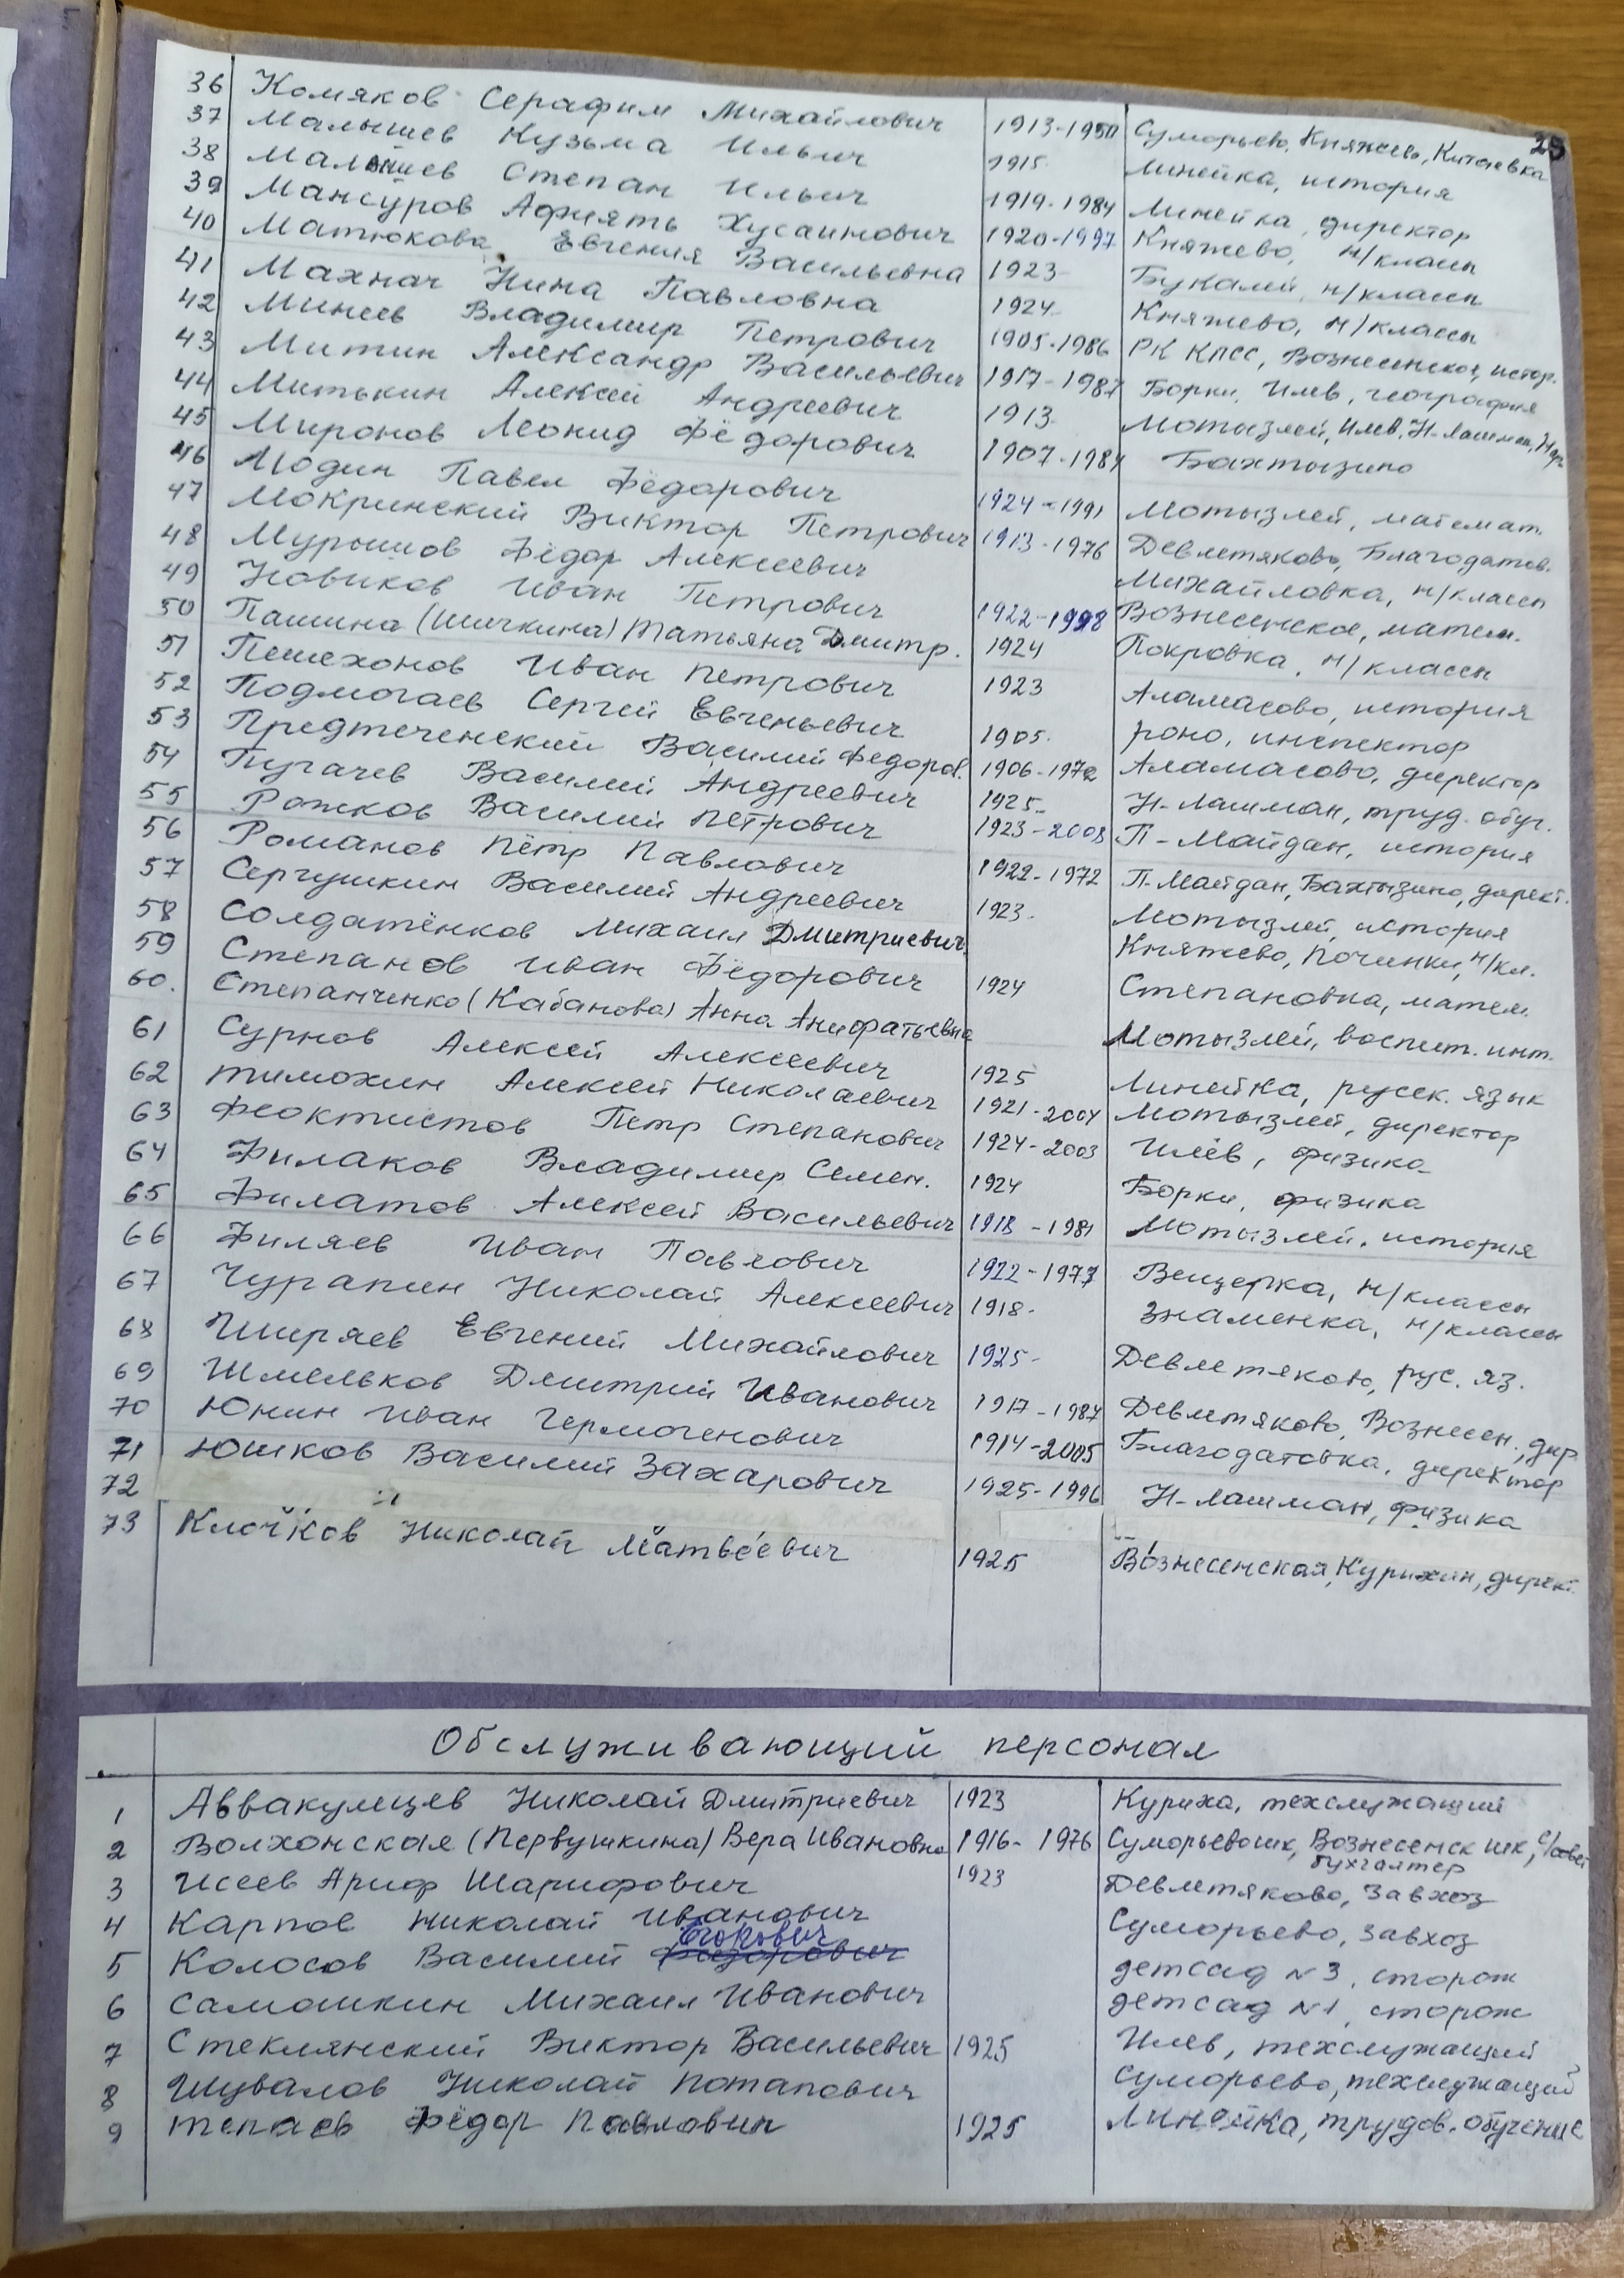 25
36 Комяков Серафим Михайлович 1913-1950 Суморьево, Княжево, Китаевка
37 Малышев Кузьма Ильич 1915 Линейка, история
38 Малышев Степан Ильич 1919-1984 Линейка, директор
39 Мансуров Афиять Хусаинович 1920-1997 Княжево, н/классы
40 Матюкова Евгения Васильевна 1923 Букалей, н/классы
41 Махнач Нина Павловна 1924 Княжево, н/классы
42 Минеев Владимир Петрович 1905-1986 РК КПСС, Вознесенская, истор.
43 Митин Александр Васильевич 1917-1987 Борки, Илев, география
44 Митькин Алексей Андреевич 1913 Мотызлей, Илев, Н-Лашман,
45 Миронов Леонид Фёдорович 1907-1984 Бахтызино
46 Модин Павел Фёдорович 1924-1991 Мотызлей, математ.
47 Мокринский Виктор Петрович 1913-1976 Девлетяково, Благодатов.
48 Мурышов Фёдор Алексеевич Михайловка, н/классы
49 Новиков Иван Петрович 1922-1998 Вознесенское, матем.
50 Пашина (Шичкина) Татьяна Дмитр. 1924 Покровка, н/классы
51 Пешехонов Иван Петрович 1923 Аламасово, история
52 Подмогаев Сергей Евгеньевич 1905. роно, инспектор
53 Предтеченский Василий Федоров. 1906-1972 Аламасово, директор
54 Пугачев Василий Андреевич 1925- Н-Лашман, труд. обуч.
55 Рожков Василий Петрович 1923-2003 П-Майдан, история
56 Романов Пётр Павлович 1922-1972 П.Майдан, Бахтызино, директ.
57 Сергушкин Василий Андреевич 1923. Мотызлей, история
58 Солдатёнков Михаил Дмитриевич Княжево, Починки, н/кл.
59 Степанов Иван Фёдорович 1924 Степановка, матем.
60. Степанченко (Кабанова) Анна Анифатьевна Мотызлей, воспит. инт.
61 Сурнов Алексей Алексеевич 1925 Линейка, русск. язык
62 Тимохин Алексей Николаевич 1921-2004 Мотызлей, директор
63 Феоктистов Петр Степанович 1924-2003 Илёв, физика
64 Филаков Владимир Семен. 1924 Борки, физика
65 Филатов Алексей Васильевич 1918-1981 Мотызлей, история
66 Филяев Иван Павлович 1922-1977 Вещерка, н/классы
67 Чурапин Николай Алексеевич 1918- Знаменка, н/классы
68 Ширяев Евгений Михайлович 1925- Девлетяково, рус. яз.
69 Шмельков Дмитрий Иванович 1917-1987 Девлетяково, Вознесен., дир.
70 Юнин Иван Гермогенович 1914-2005 Благодатовка, директор
71 Юшков Василий Захарович 1925-1996 Н-Лашман, физика
72
73 Клочков Николай Матвеевич 1925 Вознесенская, Курихин, директ.
Обслуживающий персонал
1 Аввакумцев Николай Дмитриевич 1923 Куриха, техслужащий
2 Волхонская (Первушкина) Вера Ивановна 1916-1976 Суморьевошк, Вознесенск шк, с/совет
бухгалтер
3 Исеев Ариф Шарифович 1923 Девлетяково, завхоз
4 Карпов Николай Иванович Суморьево, завхоз
5 Колосов Василий Федорович детсад №3, сторож
6 Самошкин Михаил Иванович детсад №1, сторож
7 Стеклянский Виктор Васильевич 1925 Илев, техслужащий
8 Шувалов Николай Потапович Суморьево, техслужащий
9 Тепаев Фёдор Павлович 1925 Линейка, трудов. обучение